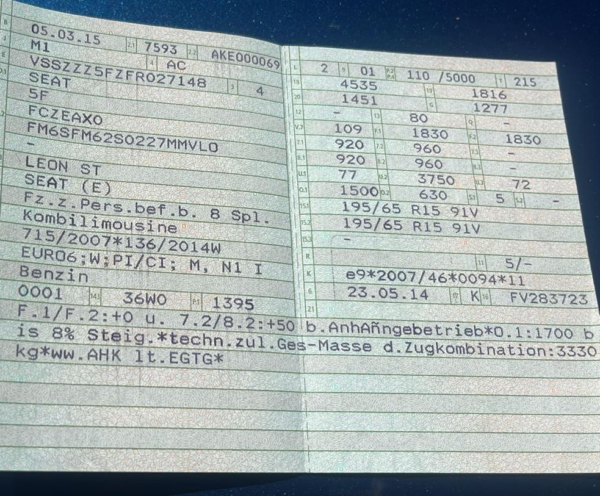 05.03.15 7593 AKE000069
M1 AC
VSSZZZ5FZFR027148 4
SEAT
5F
FCZEAX0
FM6SFM62S0227MMVL0
-
LEON ST
SEAT (E)
Fz.z.Pers.bef.b. 8 Spl.
Kombilimousine
715/2007*136/2014W
EURO6;W;PI/CI; M, N1 I
Benzin
0001 36W0 1395
2 01 110 /5000 215
4535 1816
1451 1277
- 80 -
109 1830 1830
920 960 -
920 960 -
77 3750 72
1500 630 5 -
195/65 R15 91V
195/65 R15 91V
-
5/-
e9*2007/46*0094*11
23.05.14 K FV283723
F.1/F.2:+0 u. 7.2/8.2:+50 b.AnhAñngebetrieb*0.1:1700 b
is 8% Steig.*techn.zul.Ges-Masse d.Zugkombination:3330
kg*ww.AHK lt.EGTG*